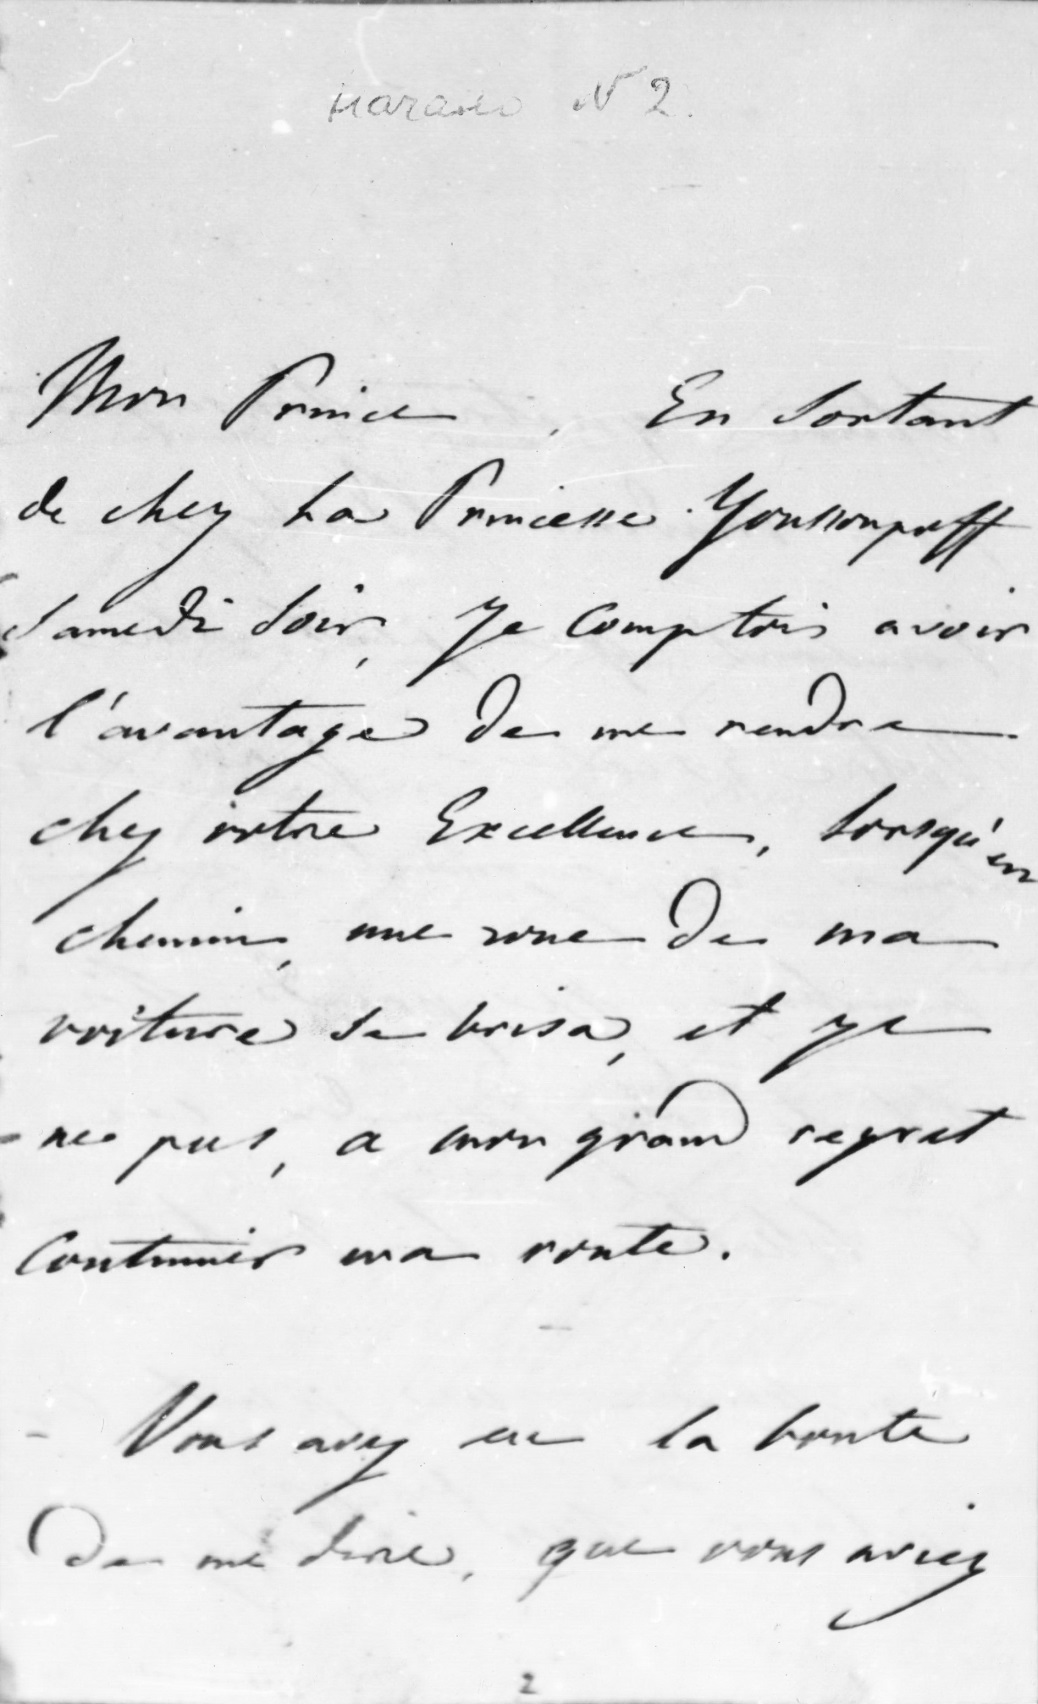 начало N 2.
Mon Prince, En sortant
de chez La Princesse Youssoupoff
Samedi soir, Je comptois avoir
l'avantage de me rendre
chez votre Excellence, lorsqu'en
chemin, une roue de ma
voiture se brisa, et je
ne pus, a mon grand regret
continuer ma route.
Vous avez eu la bonte
de me dire, que vous aviez
2